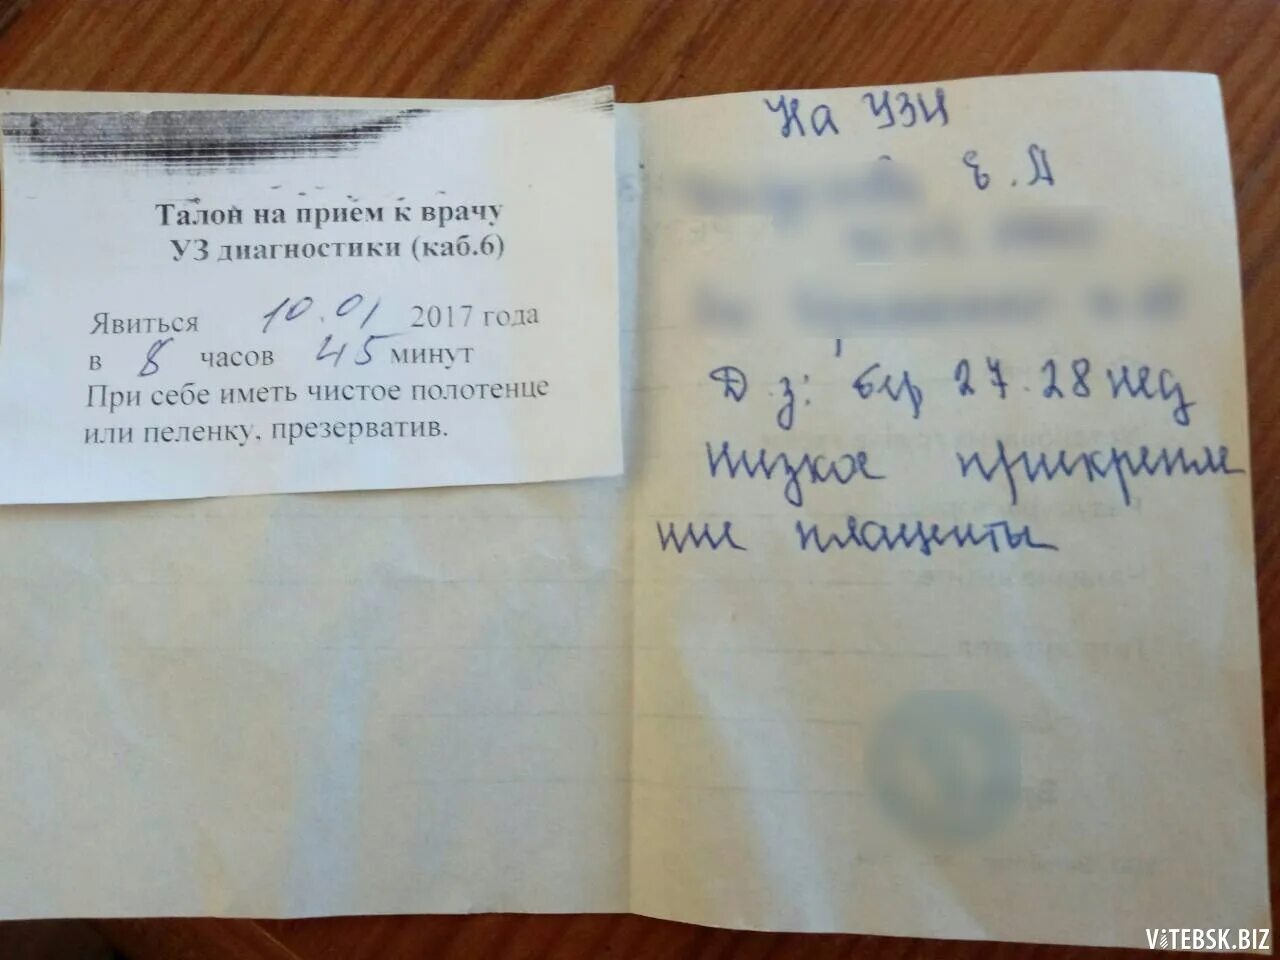 Талон на прием к врачу
УЗ диагностики (каб.6)
Явиться 10.01 2017 года
в 8 часов 45 минут
При себе иметь чистое полотенце
или пеленку, презерватив.
На УЗИ
Е.А
Д.з: бер 27-28 нед
низкое прикрепле
ние плаценты
ViTEBSK.BIZ